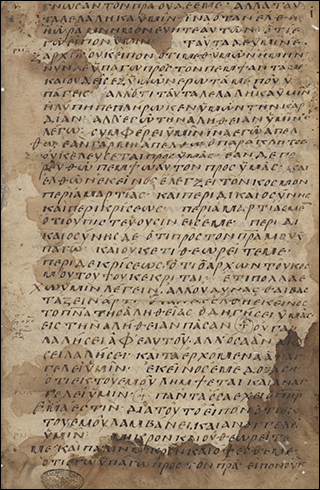 ΓΝΩΣΑΝ ΤΟΝ ΠΡΑ ΟΥΔΕ ΕΜΕ ΑΛΛΑ ΤΑΥ
ΤΑ ΛΕΛΑΛΗΚΑ ΥΜΙΝ ΙΝΑ ΟΤΑΝ ΕΛΘΗ
Η ΩΡΑ ΜΝΗΜΟΝΕΥΗΤΕ ΑΥΤΩΝ ΟΤΙ Ε
ΓΩ ΕΙΠΟΝ ΥΜΙΝ ΤΑΥΤΑ ΔΕ ΥΜΙΝ Ε
ΞΑΡΧΗΣ ΟΥΚ ΕΙΠΟΝ ΟΤΙ ΜΕΘ ΥΜΩΝ ΗΜΗΝ
ΝΥΝ ΔΕ ΥΠΑΓΩ ΠΡΟΣ ΤΟΝ ΠΕΜΨΑΝΤΑ ΜΕ
ΚΑΙ ΟΥΔΕΙΣ ΕΞ ΥΜΩΝ ΕΡΩΤΑ ΜΕ ΠΟΥ Υ
ΠΑΓΕΙΣ ΑΛΛ ΟΤΙ ΤΑΥΤΑ ΛΕΛΑΛΗΚΑ ΥΜΙΝ
Η ΛΥΠΗ ΠΕΠΛΗΡΩΚΕΝ ΥΜΩΝ ΤΗΝ ΚΑΡ
ΔΙΑΝ ΑΛΛ ΕΓΩ ΤΗΝ ΑΛΗΘΕΙΑΝ ΥΜΙΝ
ΛΕΓΩ ΣΥΜΦΕΡΕΙ ΥΜΙΝ ΙΝΑ ΕΓΩ ΑΠΕΛ
ΘΩ ΕΑΝ ΓΑΡ ΜΗ ΑΠΕΛΘΩ Ο ΠΑΡΑΚΛΗΤΟΣ
ΟΥΚ ΕΛΕΥΣΕΤΑΙ ΠΡΟΣ ΥΜΑΣ ΕΑΝ ΔΕ ΠΟ
ΡΕΥΘΩ ΠΕΜΨΩ ΑΥΤΟΝ ΠΡΟΣ ΥΜΑΣ ΚΑΙ
ΕΛΘΩΝ ΕΚΕΙΝΟΣ ΕΛΕΓΞΕΙ ΤΟΝ ΚΟΣΜΟΝ
ΠΕΡΙ ΑΜΑΡΤΙΑΣ ΚΑΙ ΠΕΡΙ ΔΙΚΑΙΟΣΥΝΗΣ
ΚΑΙ ΠΕΡΙ ΚΡΙΣΕΩΣ ΠΕΡΙ ΑΜΑΡΤΙΑΣ ΜΕΝ
ΟΤΙ ΟΥ ΠΙΣΤΕΥΟΥΣΙΝ ΕΙΣ ΕΜΕ ΠΕΡΙ ΔΙ
ΚΑΙΟΣΥΝΗΣ ΔΕ ΟΤΙ ΠΡΟΣ ΤΟΝ ΠΡΑ ΜΟΥ Υ
ΠΑΓΩ ΚΑΙ ΟΥΚΕΤΙ ΘΕΩΡΕΙΤΕ ΜΕ
ΠΕΡΙ ΔΕ ΚΡΙΣΕΩΣ ΟΤΙ Ο ΑΡΧΩΝ ΤΟΥ ΚΟΣ
ΜΟΥ ΤΟΥΤΟΥ ΚΕΚΡΙΤΑΙ ΕΤΙ ΠΟΛΛΑ Ε
ΧΩ ΥΜΙΝ ΛΕΓΕΙΝ ΑΛΛ ΟΥ ΔΥΝΑΣΘΕ ΒΑΣ
ΤΑΖΕΙΝ ΑΡΤΙ ΕΛΘΗ ΕΚΕΙΝΟΣ
ΤΟ ΠΝΑ ΤΗΣ ΑΛΗΘΕΙΑΣ ΟΔΗΓΗΣΕΙ ΥΜΑΣ
ΕΙΣ ΤΗΝ ΑΛΗΘΕΙΑΝ ΠΑΣΑΝ ΟΥ ΓΑΡ
ΛΑΛΗΣΕΙ ΑΦ ΕΑΥΤΟΥ ΑΛΛ ΟΣΑ ΑΝ
ΛΑΛΗΣΕΙ ΚΑΙ ΤΑ ΕΡΧΟΜΕΝΑ ΑΝΑΓ
ΓΕΛΕΙ ΥΜΙΝ ΕΚΕΙΝΟΣ ΕΜΕ ΔΟΞΑΣΕΙ
ΟΤΙ ΕΚ ΤΟΥ ΕΜΟΥ ΛΗΜΨΕΤΑΙ ΚΑΙ ΑΝΑΓ
ΓΕΛΕΙ ΥΜΙΝ ΠΑΝΤΑ ΟΣΑ ΕΧΕΙ Ο ΠΗΡ
ΕΜΑ ΕΣΤΙΝ ΔΙΑ ΤΟΥΤΟ ΕΙΠΟΝ ΟΤΙ ΕΚ
ΤΟΥ ΕΜΟΥ ΛΑΜΒΑΝΕΙ ΚΑΙ ΑΝΑΓΓΕΛΕΙ
ΥΜΙΝ ΜΙΚΡΟΝ ΚΑΙ ΟΥ ΘΕΩΡΕΙΤΕ
ΜΕ ΚΑΙ ΠΑΛΙΝ ΜΙΚΡΟΝ ΚΑΙ ΟΨΕΣΘΕ ΜΕ
ΟΤΙ ΕΓΩ ΥΠΑΓΩ ΠΡΟΣ ΤΟΝ ΠΡΑ ΕΙΠΟΝ ΟΥΝ